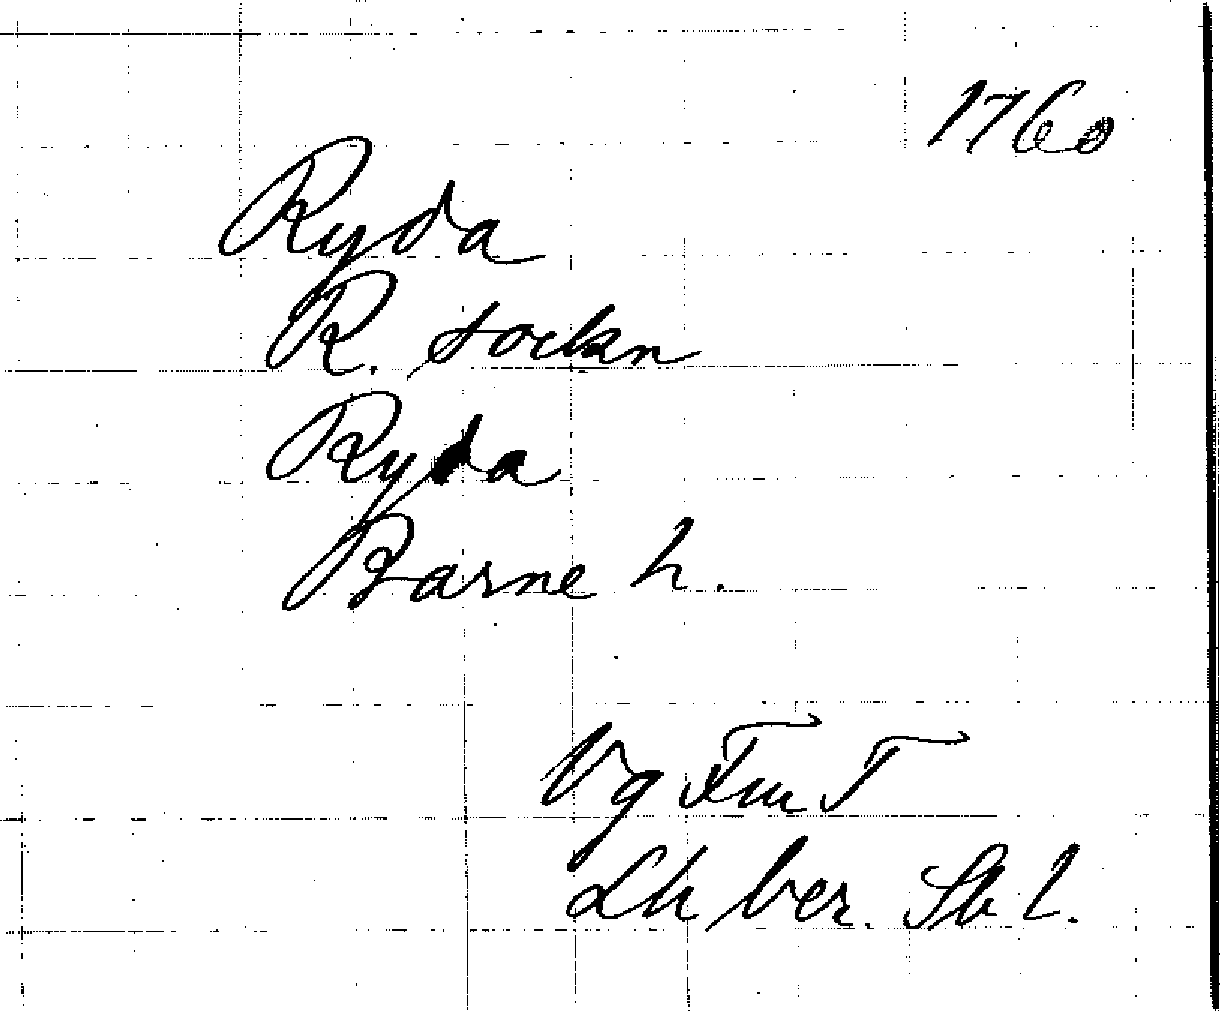 1760
Ryda
R. sockn
Ryda
Barne h.
Vg Fmt
Lh ber. Sk l.